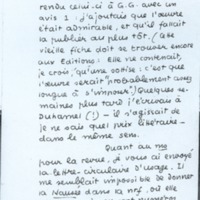 rendu celui-ci à G.G. avec un
avis 1 : j'ajoutais que l'œuvre
était admirable, et qu'il fallait
la publier au plus tôt. (Cette
vieille fiche doit se trouver encore
aux Editions. Elle ne contenait,
je crois, qu'une sottise : c'est que
l'œuvre serait "probablement assez
longue à s'imposer". Quelques se-
maines plus tard j'écrivais à
Duhamel (!) — il s'agissait de
je ne sais quel prix littéraire —
dans le même sens.
Quant au ms
pour la revue, je vous ai envoyé
la lettre-circulaire d'usage. Il
me semblait impossible de donner
la Nausée dans la nrf, où elle